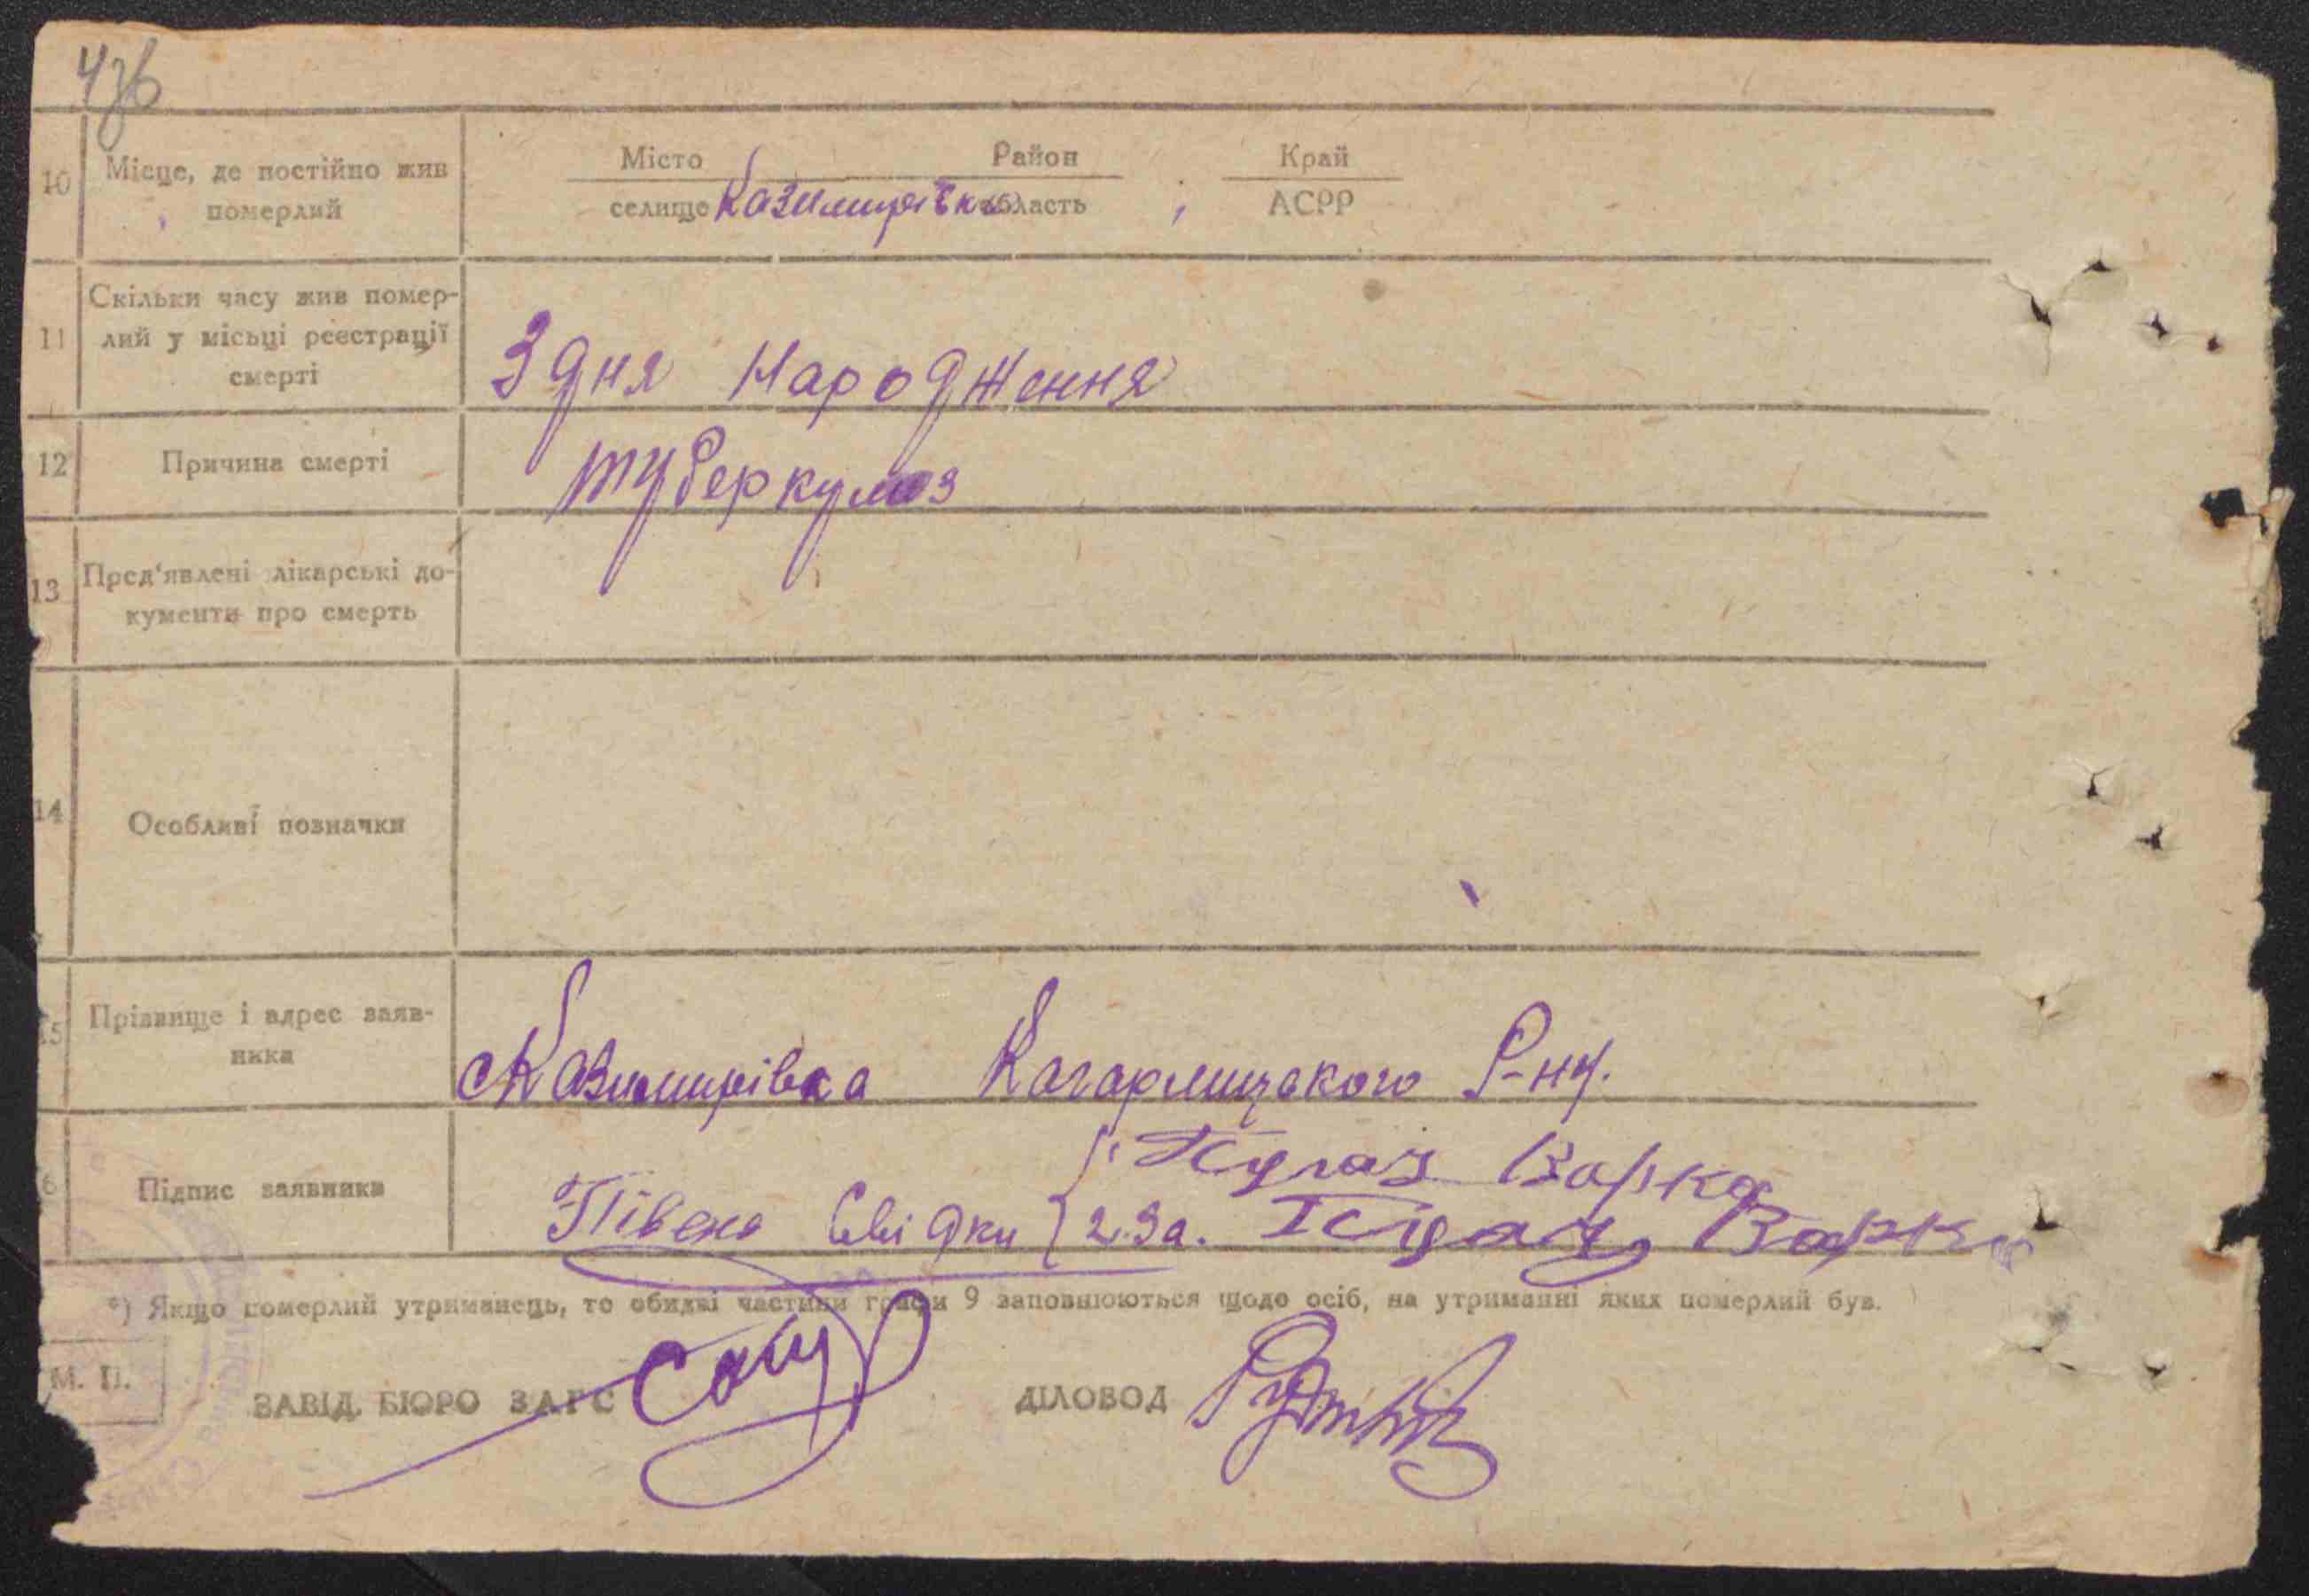 436
10 Місце, де постійно жив померлий
Місто Район Край
селище Казимирівка область АСРР
11 Скільки часу жив помер-
лий у місьці реєстрації
смерті
З дня Народження
12 Причина смерті
туберкульоз
13 Пред'явлені лікарські до-
кументи про смерть
14 Особливі позначки
15 Прізвище і адрес заяв-
ника
с Казимирівка Кагарлицького Р-ну.
6 Підпис заявника
Півень Свідки 1. Варка
2. За. Варка
*) Якщо померлий утриманець, то обидві частини графи 9 заповнюються щодо осіб, на утриманні яких померлий був.
М. П.
ЗАВІД. БЮРО ЗАГС
ДІЛОВОД